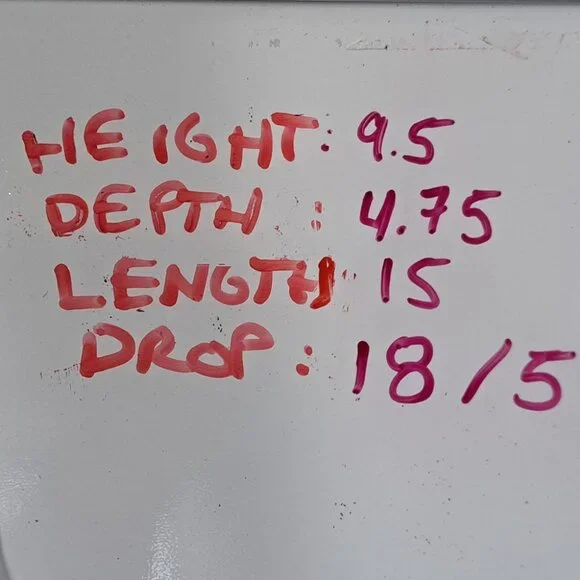 HEIGHT: 9.5
DEPTH : 4.75
LENGTH: 15
DROP : 18/5